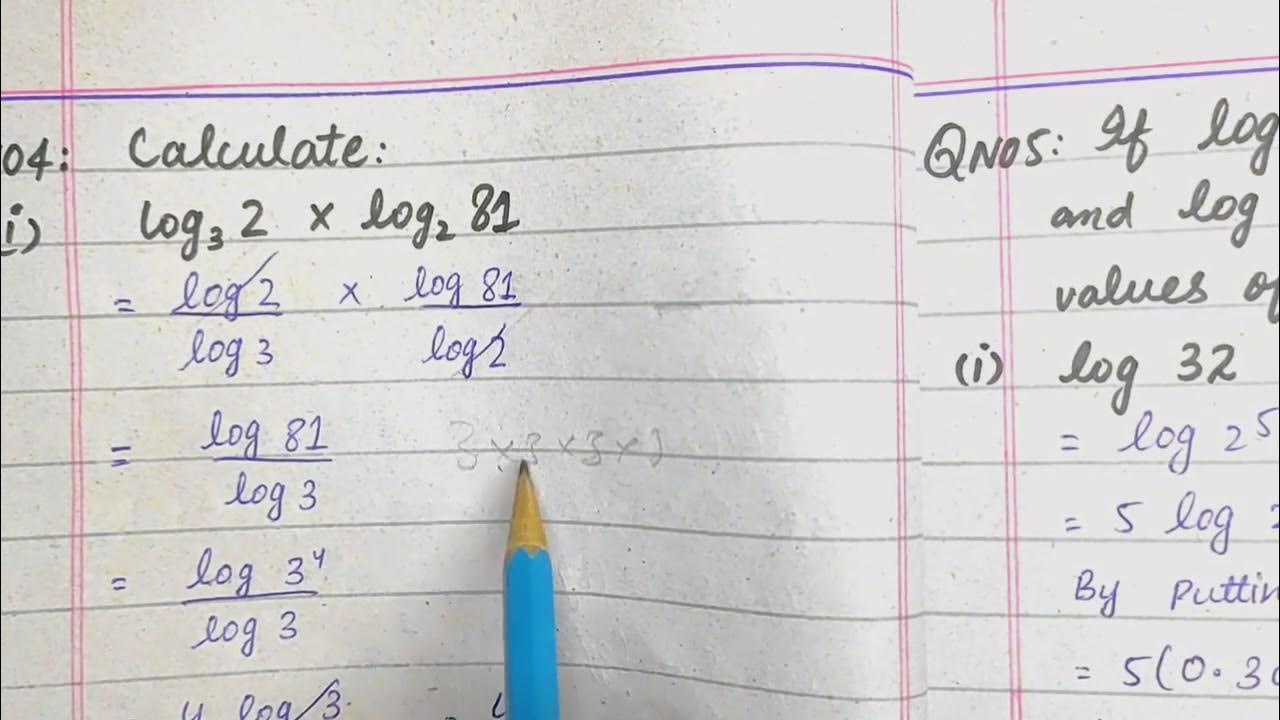 04: Calculate:
i) log₃ 2 × log₂ 81
= log 2 / log 3 × log 81 / log 2
= log 81 / log 3
3×3×3×3
= log 3⁴ / log 3
4 log 3
QNO5: If log
and log
values of
(i) log 32
= log 2⁵
= 5 log
By Puttin
= 5(0.30